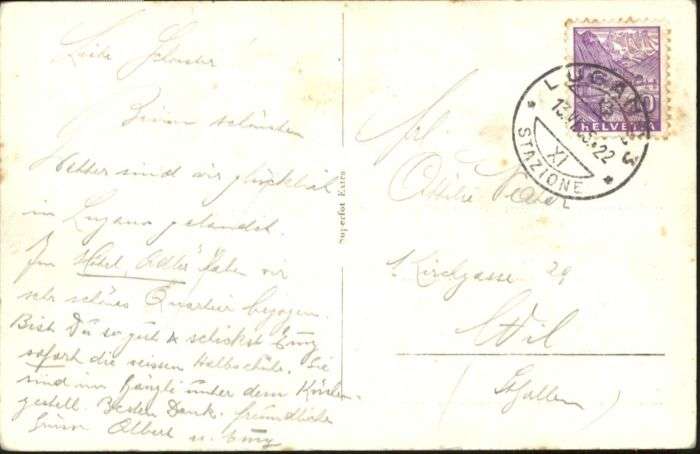 Liebe Schwester
Beim schönsten
Wetter sind wir glücklich
in Lugano gelandet.
Im Hotel Adler haben wir
sehr schönes Quartier bezogen.
Bist Du so gut & schickst Emy
sofort die weissen Halbschuhe. Sie
sind im Gängli unter dem Kästen-
gestell. Besten Dank. freundliche
Grüsse Albert u. Emy
Superfot Extra
Frl.
Ottilie
Kirchgasse 29
Wil
(St. Gallen)
HELVETIA
LUGANO
13.
22
XI
STAZIONE